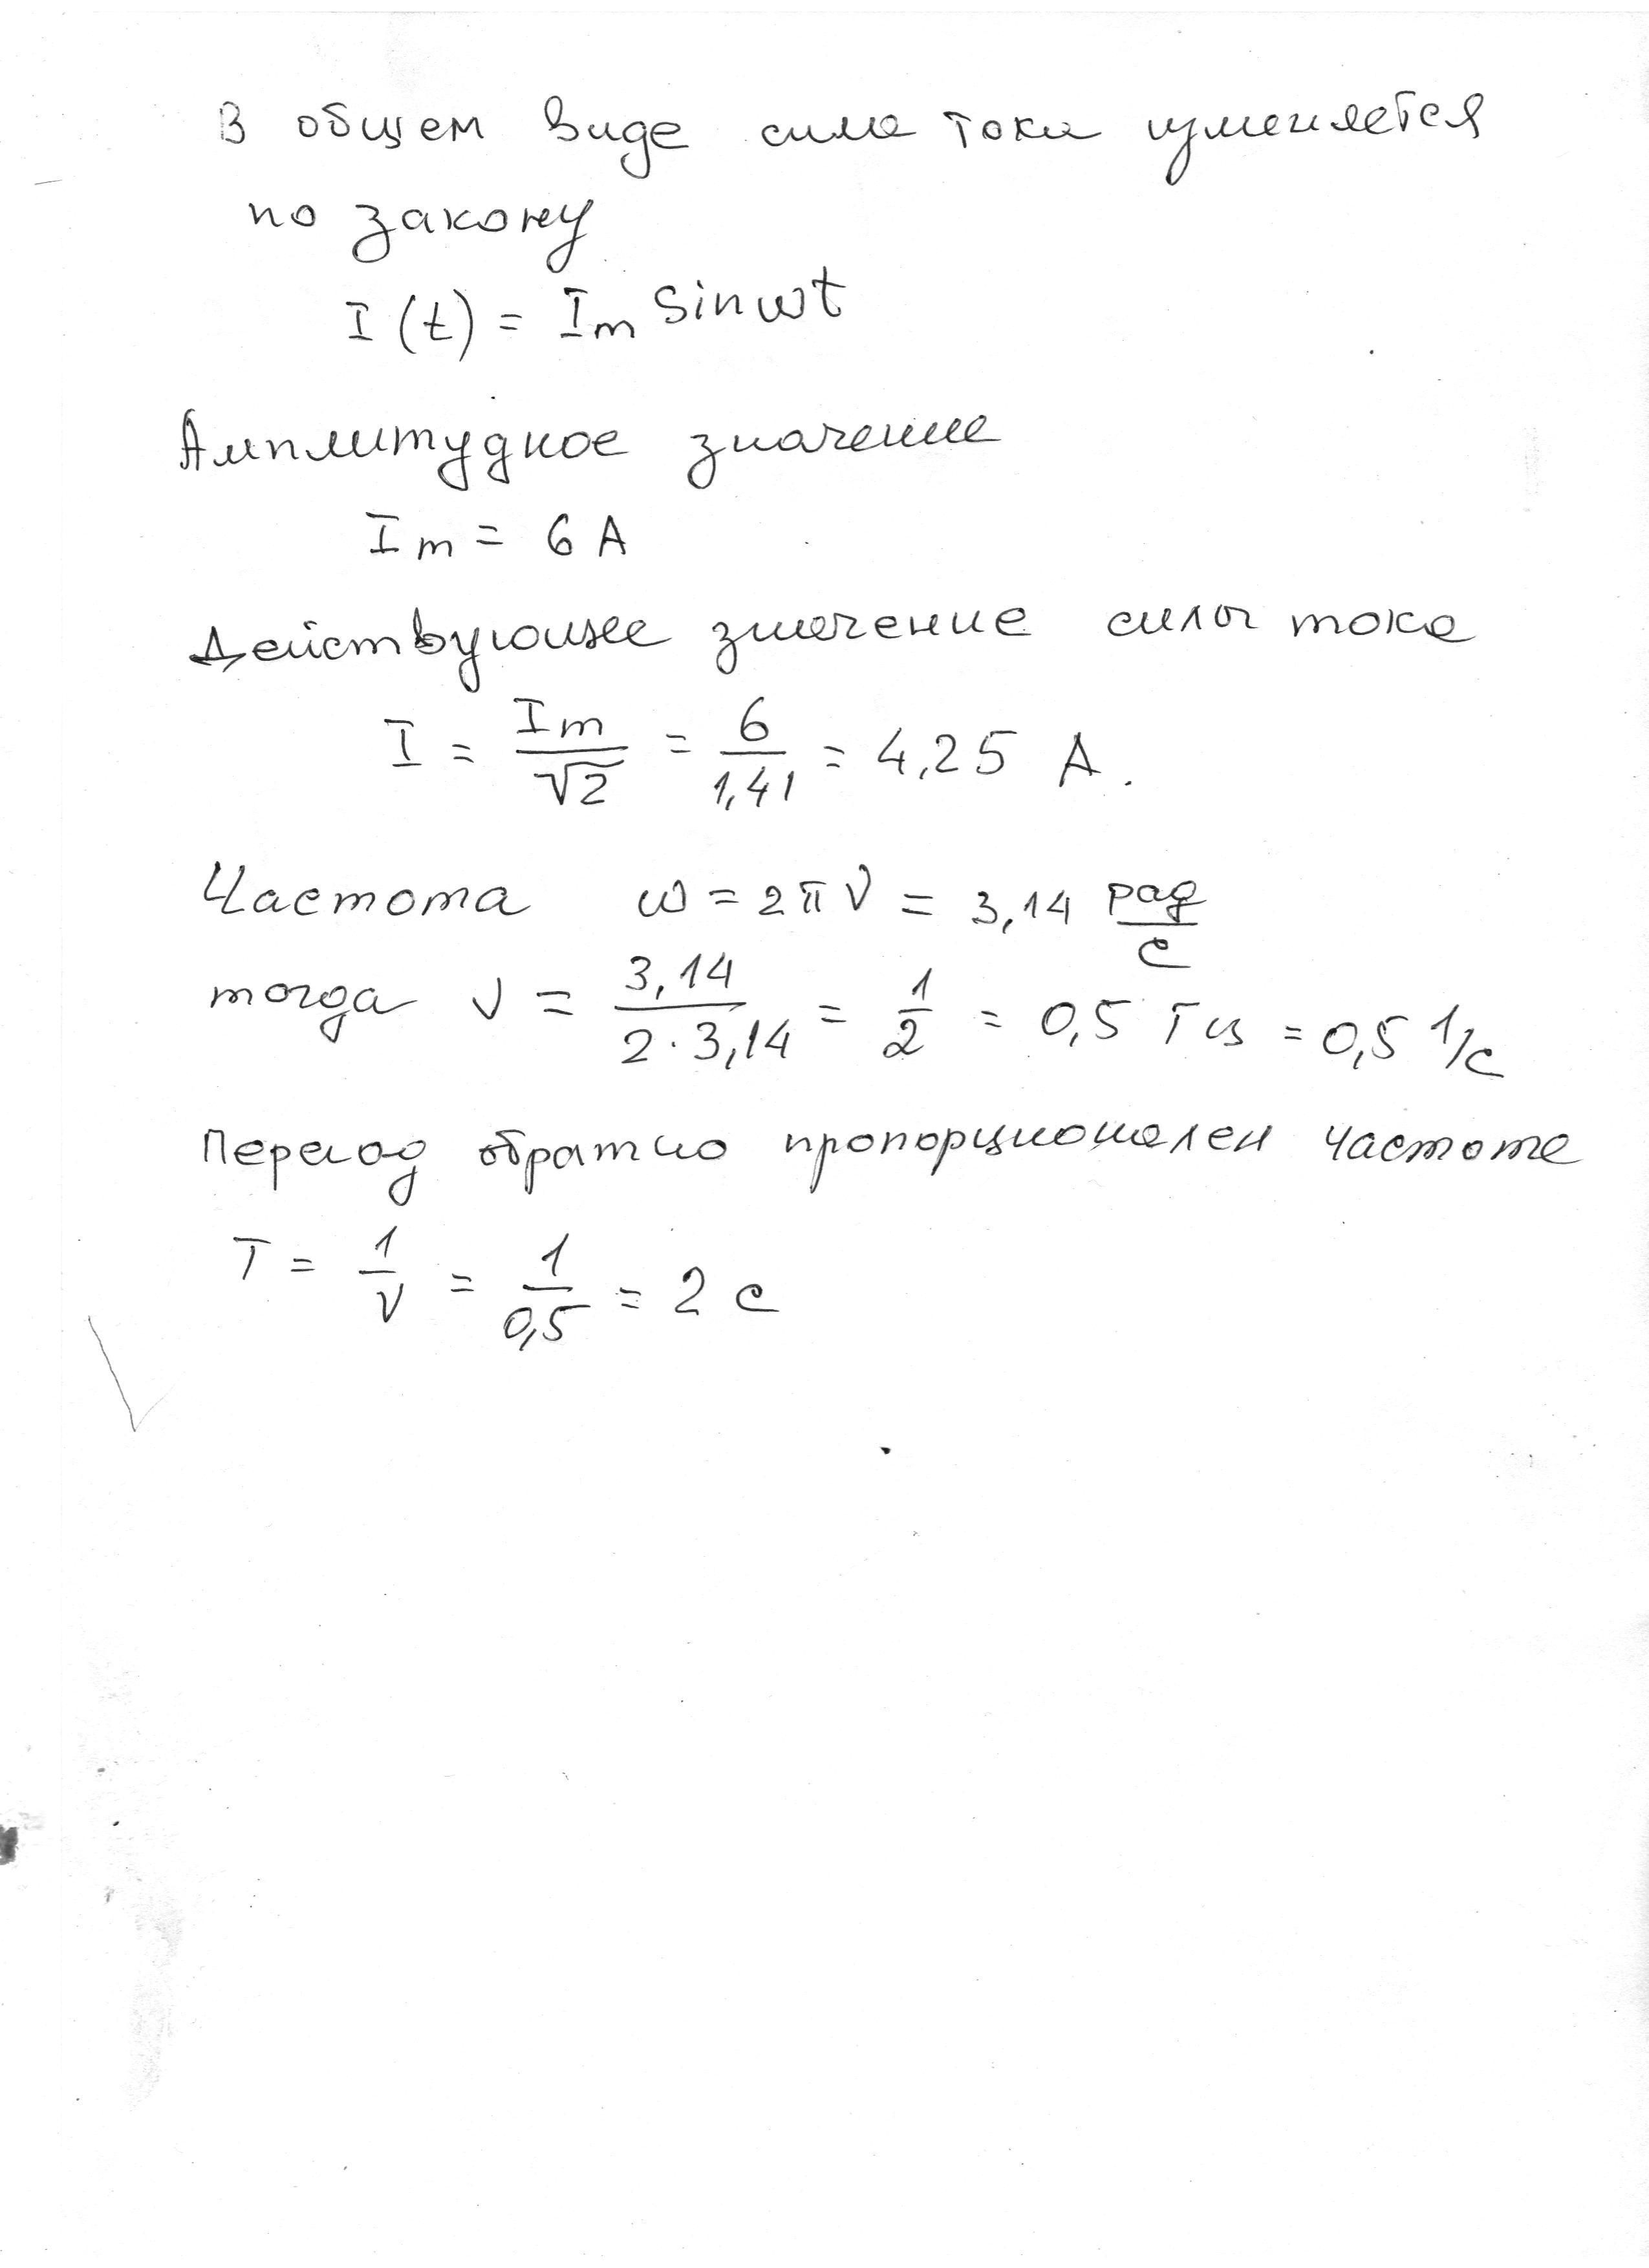 В общем виде сила тока изменяется
по закону
I(t) = Im Sin ωt
Амплитудное значение
Im = 6 A
Действующее значение силы тока
I = Im/√2 = 6/1,41 = 4,25 A.
Частота ω = 2πν = 3,14 рад/с
тогда ν = 3,14/(2·3,14) = 1/2 = 0,5 Гц = 0,5 1/с
Период обратно пропорционален частоте
T = 1/ν = 1/0,5 = 2 с